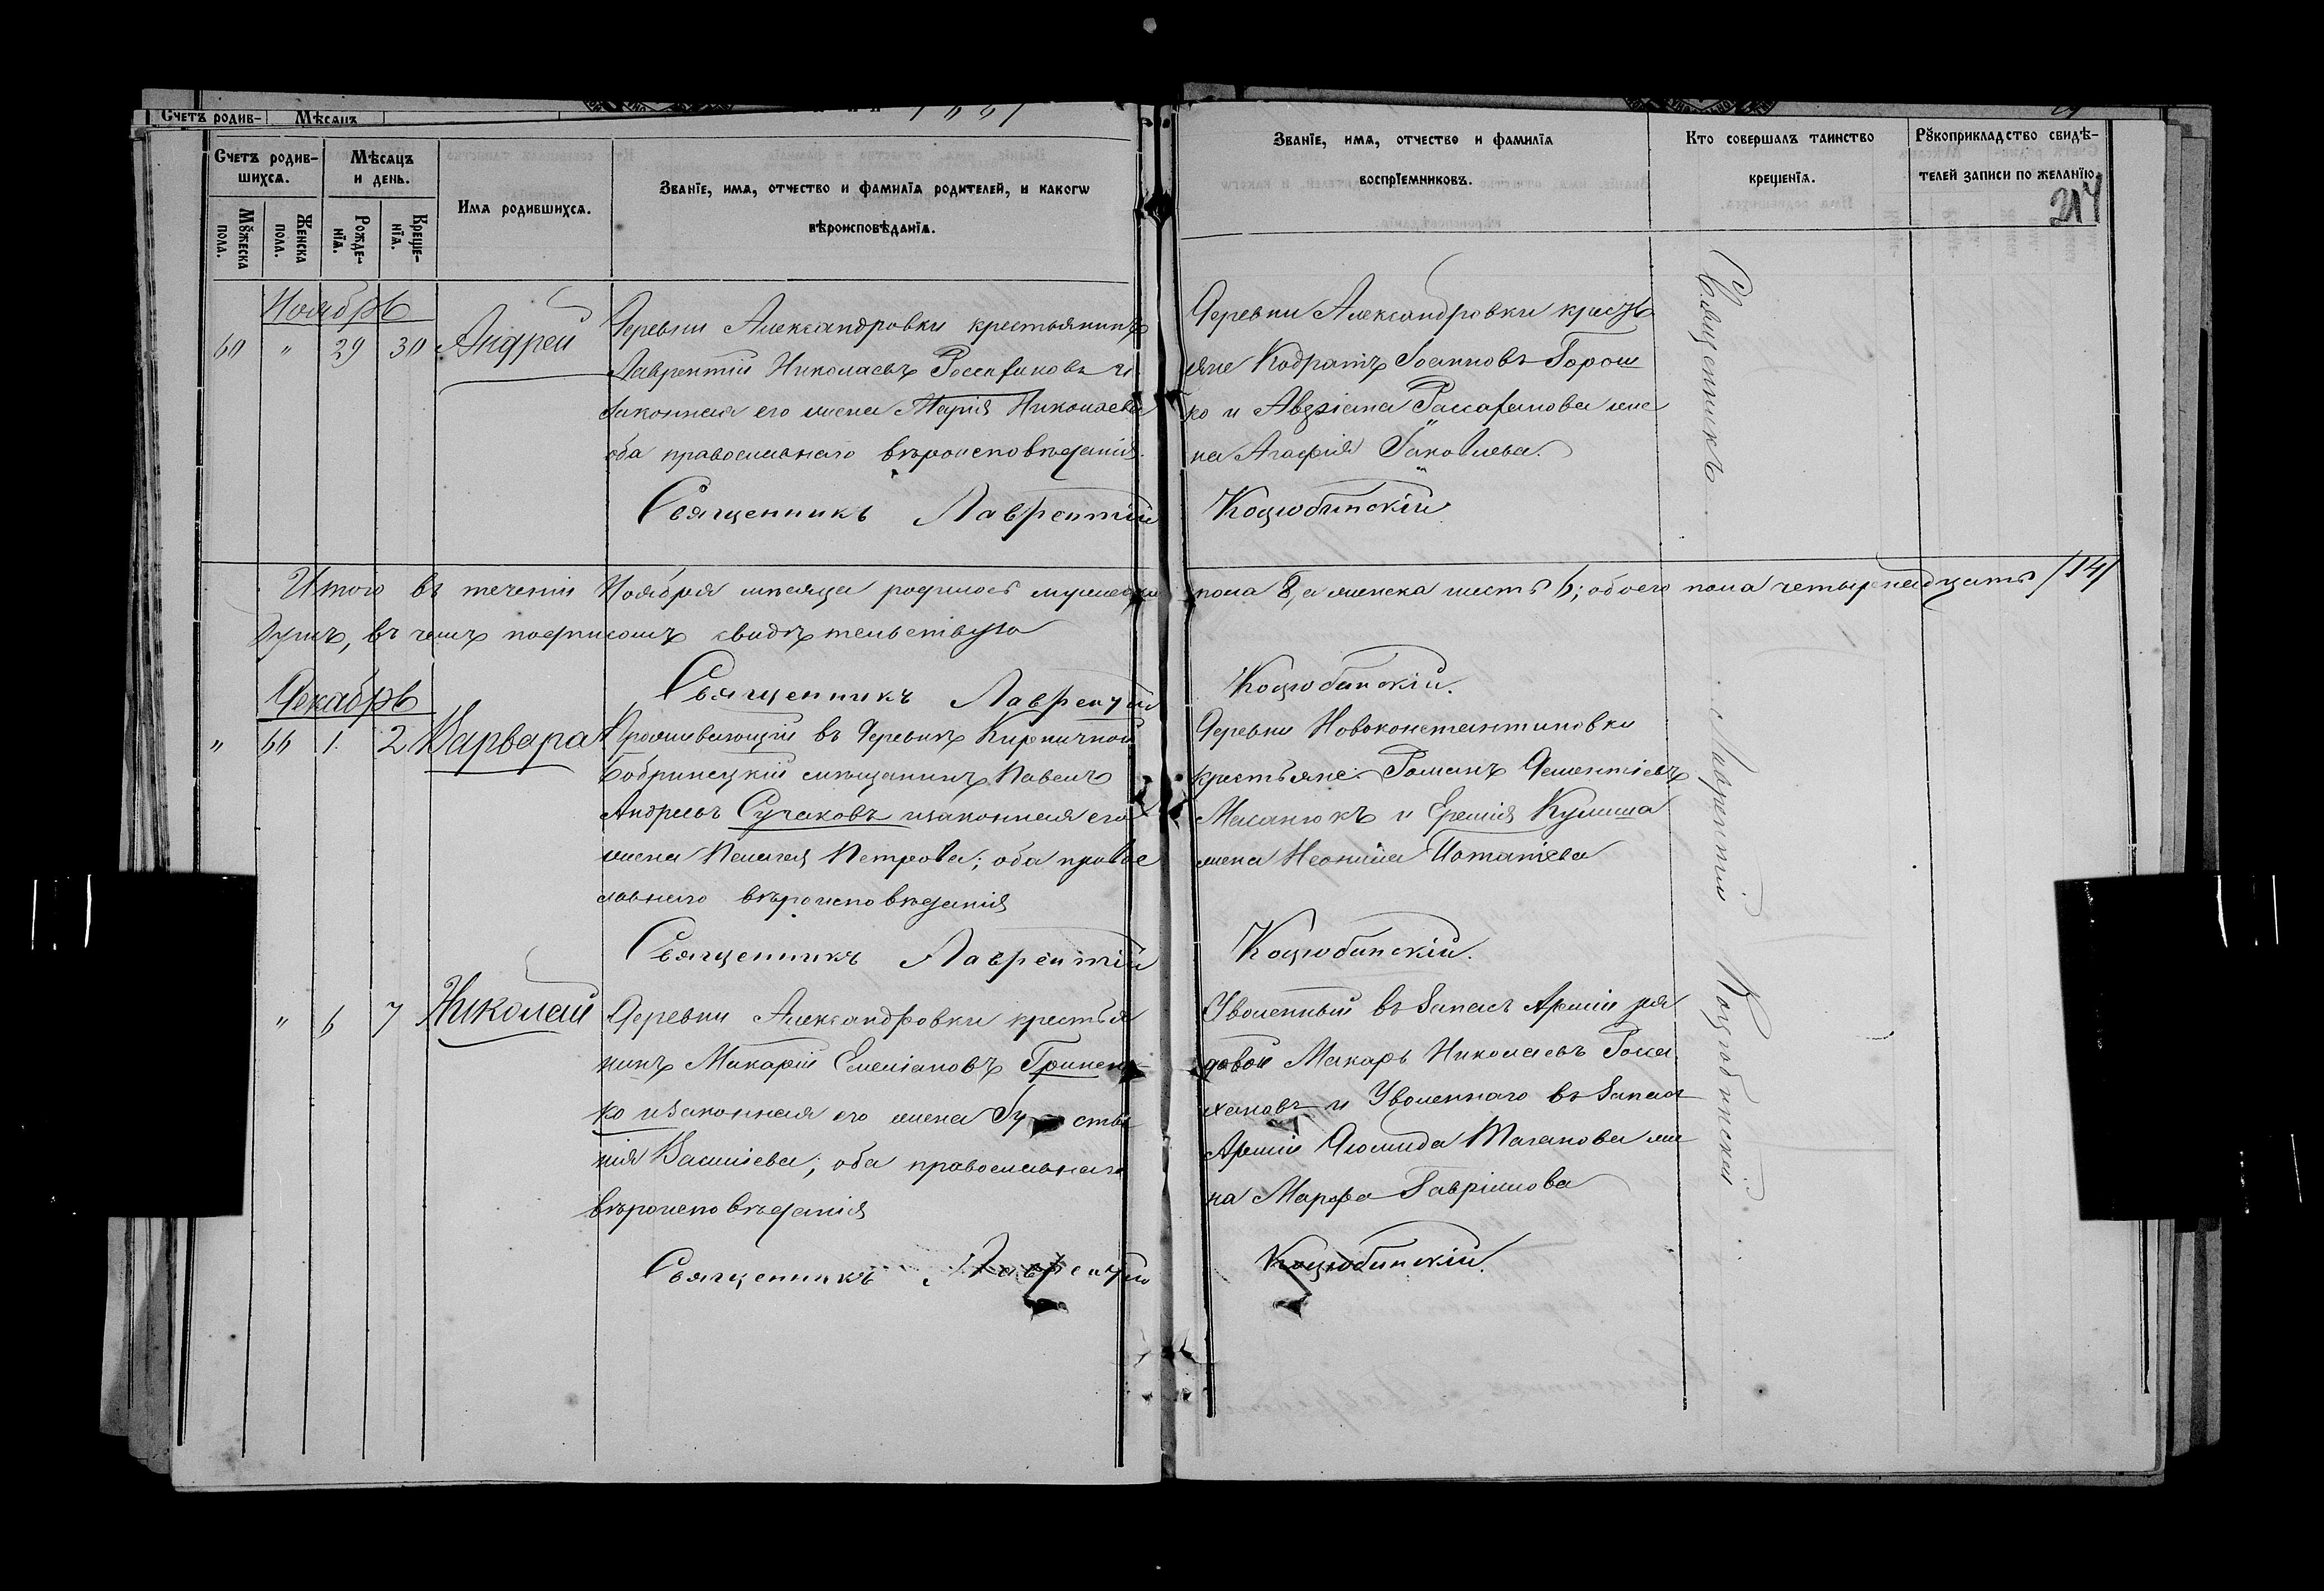 Счетъ родив- Мѣсяцъ
Счетъ родив-
шихся.
Мѣсяцъ
и день.
Имя родившихся.
Званїе, имя, отчество и фамилїя родителей, и какогѡ
вѣроисповѣданїя.
Мꙋжеска
пола.
Женска
пола.
Рожде-
нїя.
Креще-
нїя.
Званїе, имя, отчество и фамилїя
воспрїемниковъ.
Кто совершалъ таинство
крещенїя.
Рꙋкоприкладство свидѣ-
телей записи по желанїю.
214
Ноябрь
60 " 29 30 Андрей
Деревни Александровки крестьянинъ
Лаврентій Николаевъ и
законная его жена Марія Николаева
оба православнаго вѣроисповѣданія.
Священникъ Лаврентій
Деревни Александровки кресть
яне Кодратъ Іоанновъ Горош
ко и же
на Агафія Яковлева.
Коцюбинскій
Священникъ Лаврентій Коцюбинскій
Итого въ теченіи Ноября мѣсяца родилось мужеска пола 8, а женска шесть 6; обоего пола четырнадцать /14/
душъ, въ чемъ подписомъ свидѣтельствую
Священникъ Лаврентій Коцюбинскій.
Декабрь
" 66 1. 2 Варвара
Проживающій въ Деревнѣ Кирпичной
Бобринецкій мѣщанинъ Павелъ
Андреевъ Сучаковъ и законная его
жена Пелагея Петрова; оба право
славнаго вѣроисповѣданія
Священникъ Лаврентій
Деревни Новоконстантиновки
крестьяне: Романъ Дементіевъ
Маланюкъ и Еремія Кулиша
жена
Коцюбинскій.
" 6 7 Николай
Деревни Александровки крестья
нинъ Макарій Емеліановъ Гринен
ко и законная его жена
нія Василіева; оба православнаго
вѣроисповѣданія
Священникъ Лаврентій
Уволенный въ Запасъ Арміи ря
довой Макаръ Николаевъ Росса
хановъ и Уволеннаго въ Запасъ
Арміи Діомида же
на Марфа Гавріилова
Коцюбинскій.